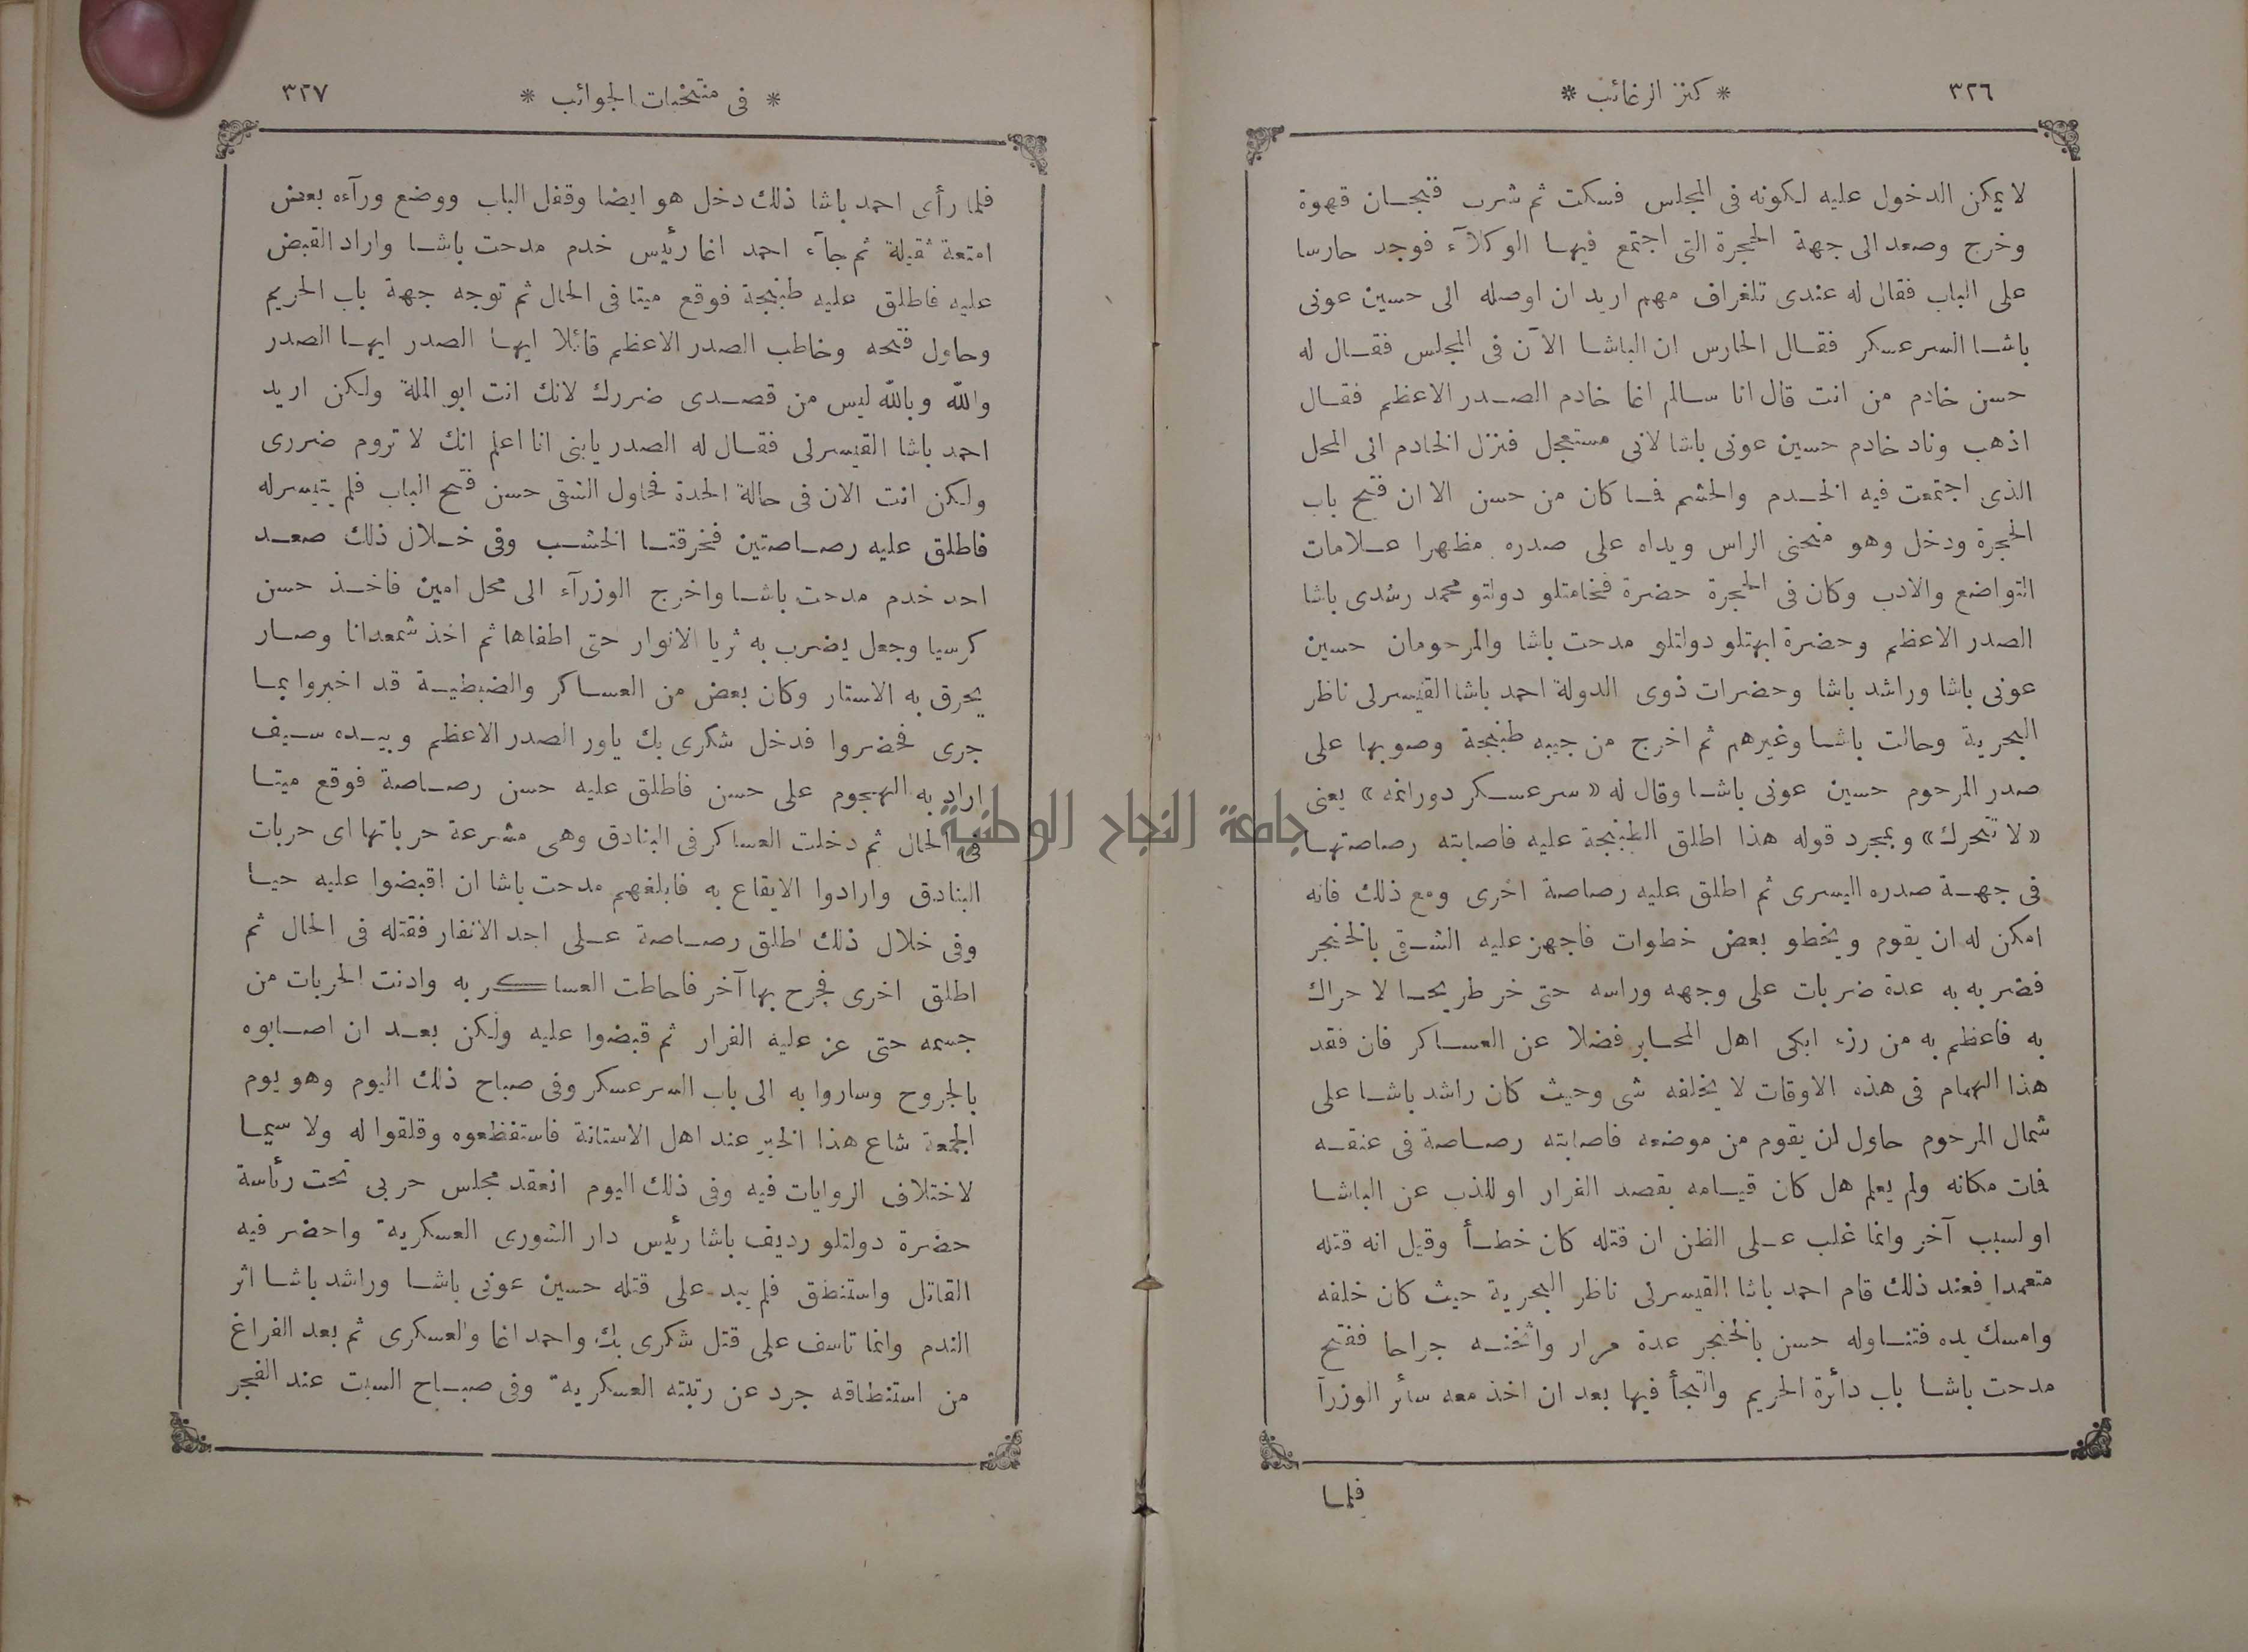 ٣٢٦
* كنز الرغائب *
لا يمكن الدخول عليه لكونه فى المجلس فسكت ثم شرب فنجان قهوة
وخرج وصعد الى جهة الحجرة التى اجتمع فيها الوكلآء فوجد حارسا
على الباب فقال له عندى تلغراف مهم اريد ان اوصله الى حسين عونى
باشا السرعسكر فقال الحارس ان الباشا الآن فى المجلس فقال له
حسن خادم من انت قال انا سالم اغا خادم الصدر الاعظم فقال
اذهب وناد خادم حسين عونى باشا لانى مستعجل فنزل الخادم الى المحل
الذى اجتمعت فيه الخدم والحشم فما كان من حسن الا ان فتح باب
الحجرة ودخل وهو منحنى الراس ويداه على صدره مظهرا علامات
التواضع والادب وكان فى الحجرة حضرة فخامتلو دولتو محمد رشدى باشا
الصدر الاعظم وحضرة ابهتلو دولتلو مدحت باشا والمرحومان حسين
عونى باشا وراشد باشا وحضرات ذوى الدولة احمد باشا القيسرلى ناظر
البحرية وحالت باشا وغيرهم ثم اخرج من جيبه طبنجة وصوبها على
صدر المرحوم حسين عونى باشا وقال له «سرعسكر دورانمه» يعنى
«لا تتحرك» وبمجرد قوله هذا اطلق الطبنجة عليه فاصابته رصاصتها
فى جهة صدره اليسرى ثم اطلق عليه رصاصة اخرى ومع ذلك فانه
امكن له ان يقوم ويخطو بعض خطوات فاجهز عليه الشقى بالخنجر
فضربه به عدة ضربات على وجهه وراسه حتى خر طريحا لا حراك
به فاعظم به من رزء ابكى اهل المحابر فضلا عن العساكر فان فقد
هذا الهمام فى هذه الاوقات لا يخلفه شى وحيث كان راشد باشا على
شمال المرحوم حاول ان يقوم من موضعه فاصابته رصاصة فى عنقه
فمات مكانه ولم يعلم هل كان قيامه بقصد الفرار او للذب عن الباشا
او لسبب آخر وانما غلب على الظن ان قتله كان خطأ وقيل انه قتله
متعمدا فعند ذلك قام احمد باشا القيسرلى ناظر البحرية حيث كان خلفه
وامسك يده فتناوله حسن بالخنجر عدة مرار واثخنه جراحا ففتح
مدحت باشا باب دائرة الحريم والتجأ فيها بعد ان اخذ معه سائر الوزرآ
فلما
* فى منتخبات الجوائب *
٣٢٧
فلما رأى احمد باشا ذلك دخل هو ايضا وقفل الباب ووضع ورآءه بعض
امتعة ثقيلة ثم جآء احمد اغا رئيس خدم مدحت باشا واراد القبض
عليه فاطلق عليه طبنجة فوقع ميتا فى الحال ثم توجه جهة باب الحريم
وحاول فتحه وخاطب الصدر الاعظم قائلا ايها الصدر ايها الصدر
والله وبالله ليس من قصدى ضررك لانك انت ابو الملة ولكن اريد
احمد باشا القيسرلى فقال له الصدر يابنى انا اعلم انك لا تروم ضررى
ولكن انت الان فى حالة الحدة فحاول الشقى حسن فتح الباب فلم يتيسرله
فاطلق عليه رصاصتين فخرقتا الخشب وفى خلال ذلك صعد
احد خدم مدحت باشا واخرج الوزرآء الى محل امين فاخذ حسن
كرسيا وجعل يضرب به ثريا الانوار حتى اطفاها ثم اخذ شمعدانا وصار
يحرق به الاستار وكان بعض من العساكر والضبطية قد اخبروا بما
جرى فحضروا فدخل شكرى بك ياور الصدر الاعظم وبيده سيف
اراد به الهجوم على حسن فاطلق عليه حسن رصاصة فوقع ميتا
فى الحال ثم دخلت العساكر فى البنادق وهى مشرعة حرباتها اى حربات
البنادق وارادوا الايقاع به فابلغهم مدحت باشا ان اقبضوا عليه حيا
وفى خلال ذلك اطلق رصاصة على احد الانفار فقتله فى الحال ثم
اطلق اخرى فجرح بها آخر فاحاطت العساكر به وادنت الحربات من
جسمه حتى عز عليه الفرار ثم قبضوا عليه ولكن بعد ان اصابوه
بالجروح وساروا به الى باب السرعسكر وفى صباح ذلك اليوم وهو يوم
الجمعة شاع هذا الخبر عند اهل الاستانة فاستفظعوه وقلقوا له ولا سيما
لاختلاف الروايات فيه وفى ذلك اليوم انعقد مجلس حربى تحت رئاسة
حضرة دولتلو رديف باشا رئيس دار الشورى العسكريه واحضر فيه
القاتل واستنطق فلم يبد على قتله حسين عونى باشا وراشد باشا اثر
الندم وانما تاسف على قتل شكرى بك واحمد اغا والعسكرى ثم بعد الفراغ
من استنطاقه جرد عن رتبته العسكريه وفى صباح السبت عند الفجر
جامعة النجاح الوطنية